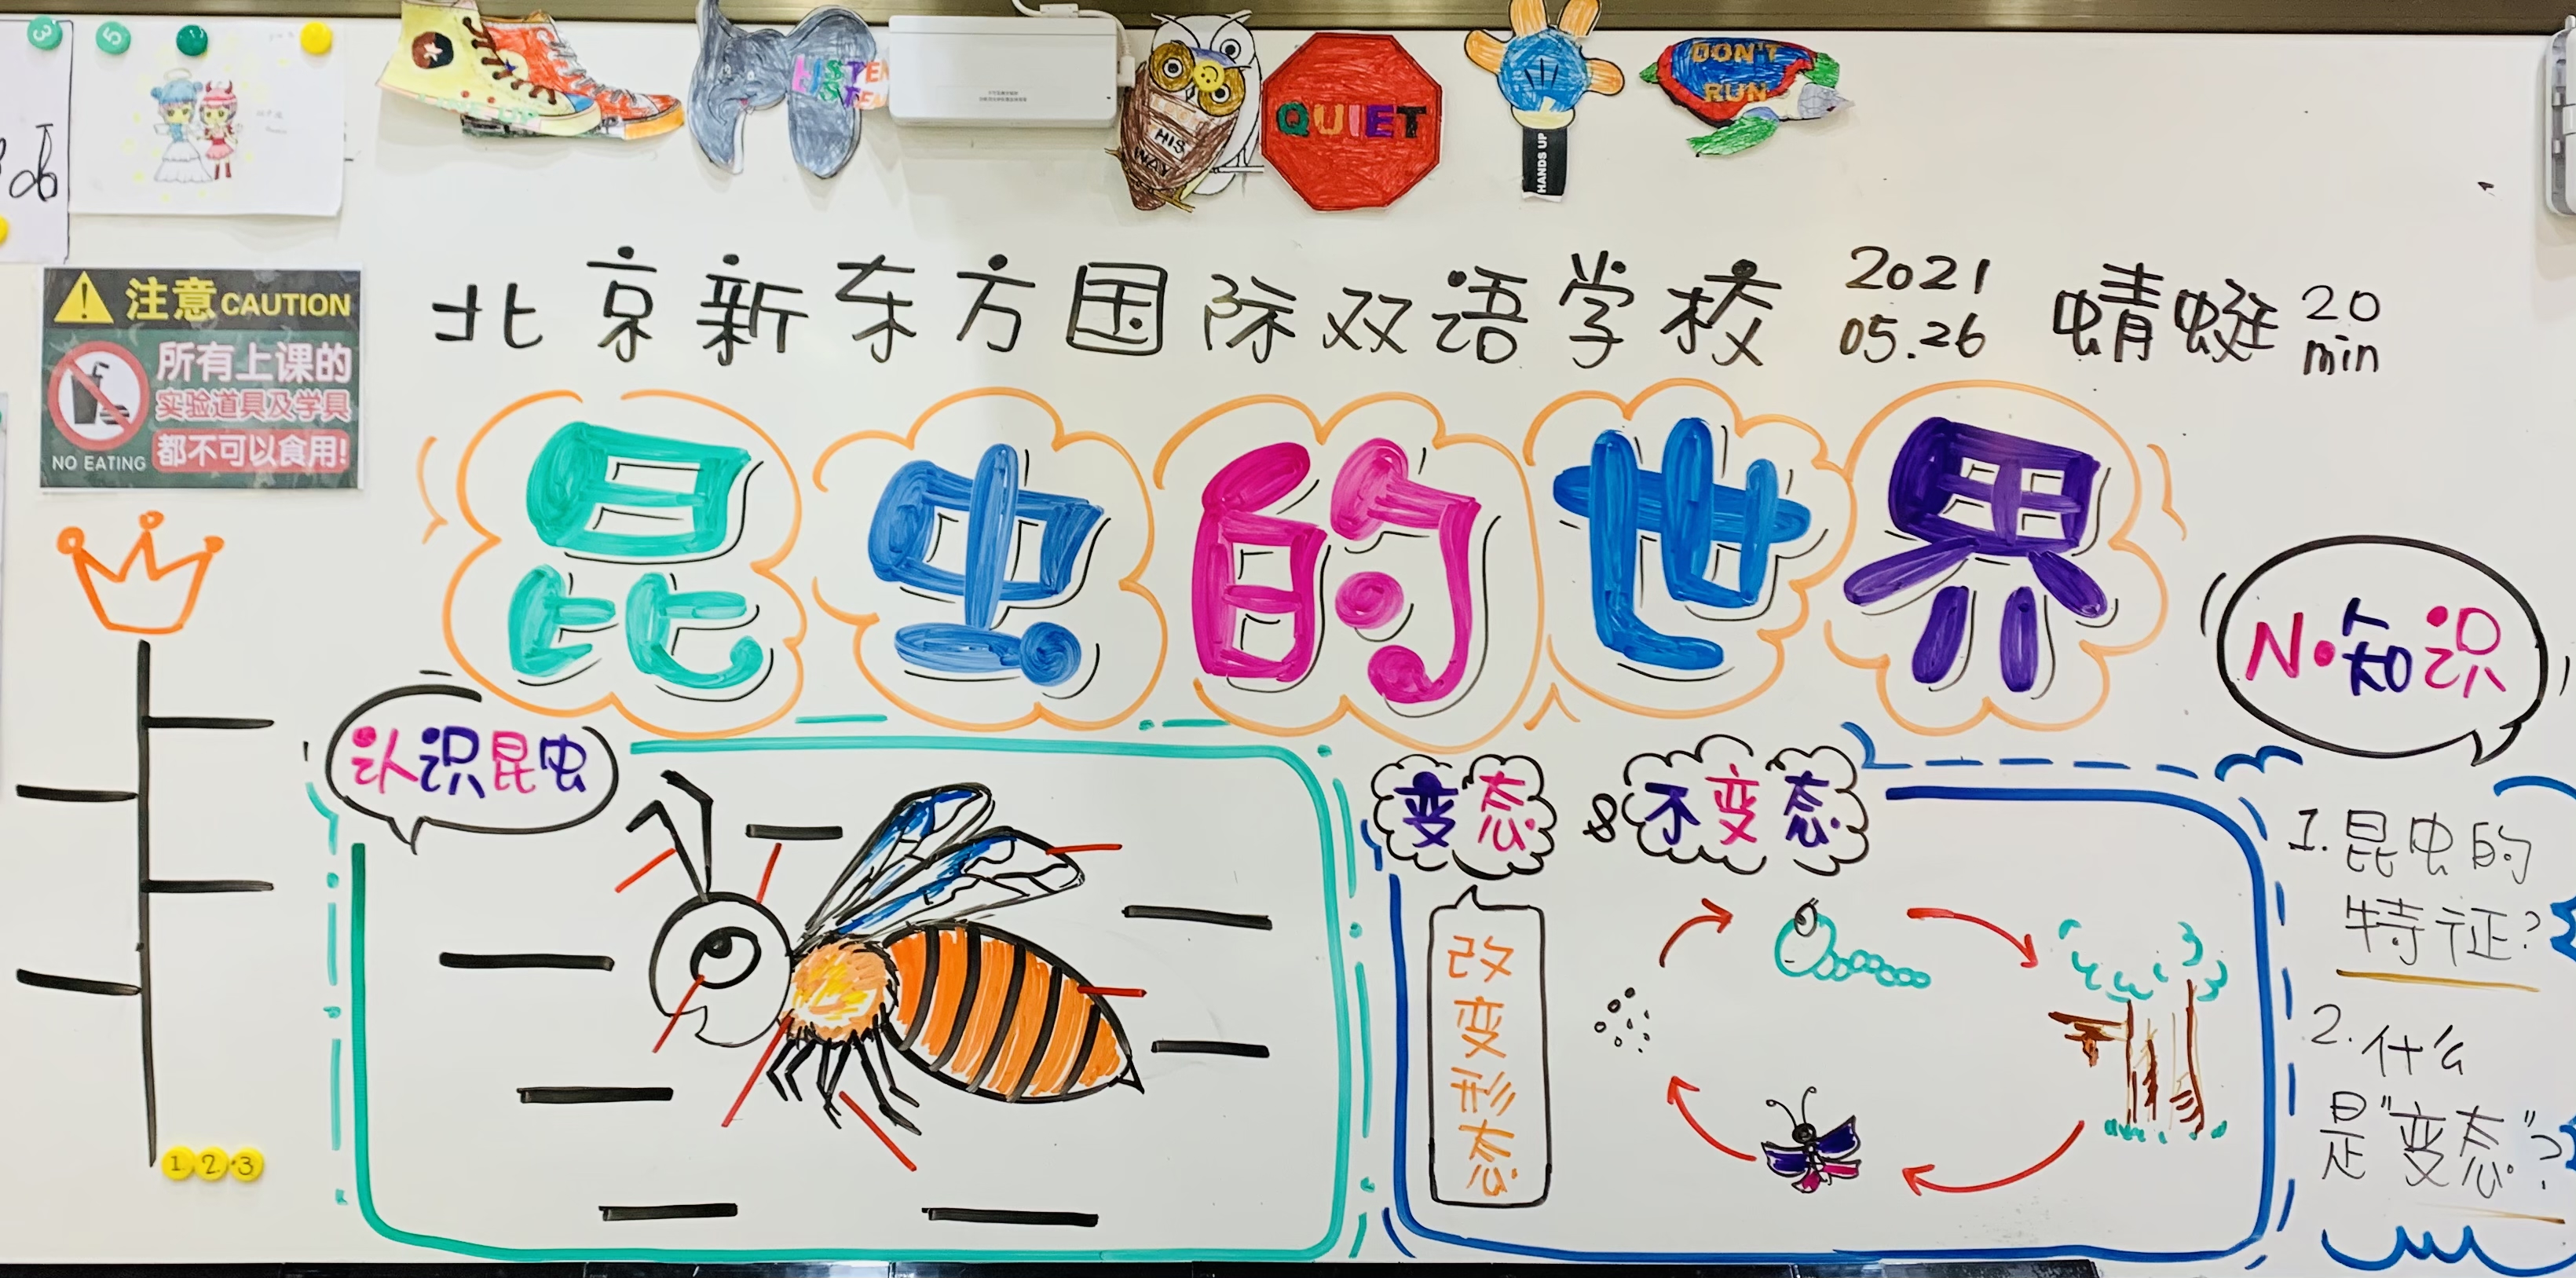 3
5
LISTEN
LISTEN
HIS
WAY
QUIET
HANDS UP
DON'T
RUN
注意 CAUTION
所有上课的
实验道具及学具
都不可以食用!
NO EATING
北京新东方国际双语学校
2021
05.26
蜻蜓
20
min
昆虫的世界
认识昆虫
变态 & 不变态
改变形态
No知识
1.昆虫的
特征?
2.什么
是"变态"?
1 2 3